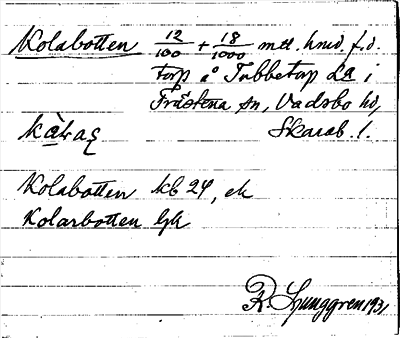 Kolabotten 12/100 + 18/1000 mtl. hmd. f.d.
torp å Tubbetorp La i
Fräkena sn, Vadsbo hd,
Skarab. l.
Kolabotten kb 24, ek
Kolarbotten Gk
R. Ljunggren 1931